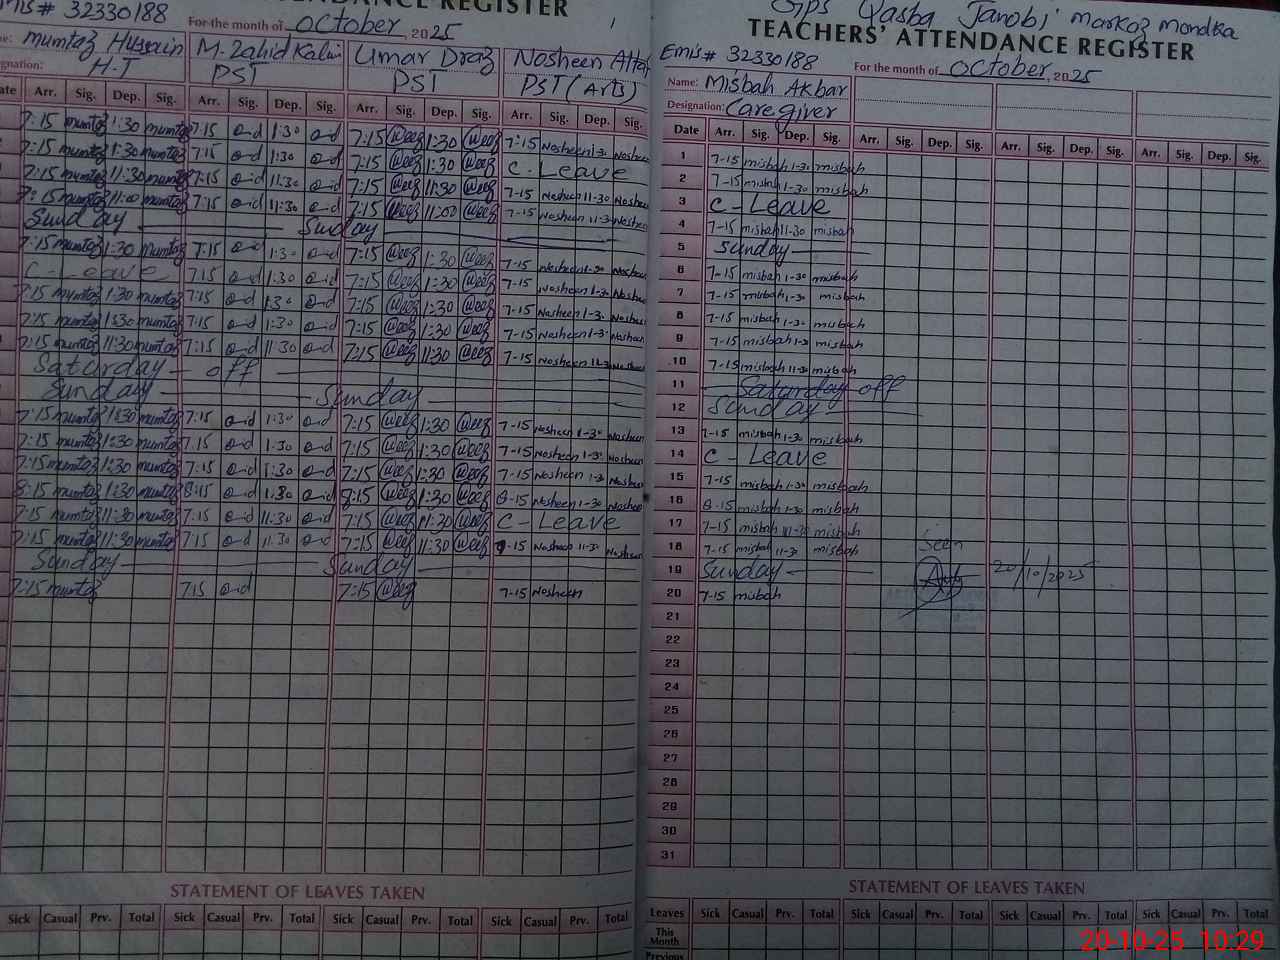 Emis # 32330188
TEACHERS' ATTENDANCE REGISTER
For the month of October, 2025
Name: Mumtaz Hussain M. Zahid Kalim Umar Draz Nosheen Attar
Designation: H.T PST PST PST (Arts)
Date Arr. Sig. Dep. Sig. Arr. Sig. Dep. Sig. Arr. Sig. Dep. Sig. Arr. Sig. Dep. Sig.
7:15 mumtaz 1:30 mumtaz 7:15 1:30 7:15 1:30 7:15 Nosheen 1-3 Nosheen
7:15 mumtaz 1:30 mumtaz 7:15 1:30 7:15 1:30 C. Leave
7:15 mumtaz 11:30 mumtaz 7:15 11:30 7:15 11:30 7-15 Nosheen 11-30 Nosheen
7:15 mumtaz 11:00 mumtaz 7:15 11:30 7:15 11:00 7-15 Nosheen 11-3 Nosheen
Sunday Sunday
7:15 mumtaz 1:30 mumtaz 7:15 1:30 7:15 1:30 7-15 Nosheen 1-30 Nosheen
C-Leave 7:15 1:30 7:15 1:30 7-15 Nosheen 1-3 Nosheen
7:15 mumtaz 1:30 mumtaz 7:15 1:30 7:15 1:30 7-15 Nosheen 1-3 Nosheen
7:15 mumtaz 1:30 mumtaz 7:15 1:30 7:15 1:30 7-15 Nosheen 1-3 Nosheen
7:15 mumtaz 11:30 mumtaz 7:15 11:30 7:15 11:30 7-15 Nosheen 11-3 Nosheen
Saturday off
Sunday Sunday
7:15 mumtaz 1:30 mumtaz 7:15 1:30 7:15 1:30 7-15 Nosheen 1-30 Nosheen
7:15 mumtaz 1:30 mumtaz 7:15 1:30 7:15 1:30 7-15 Nosheen 1-3 Nosheen
7:15 mumtaz 1:30 mumtaz 7:15 1:30 7:15 1:30 7-15 Nosheen 1-3 Nosheen
8:15 mumtaz 1:30 mumtaz 8:15 1:30 8:15 1:30 8-15 Nosheen 1-30 Nosheen
7:15 mumtaz 11:30 mumtaz 7:15 11:30 7:15 11:30 C-Leave
7:15 mumtaz 11:30 mumtaz 7:15 11:30 7:15 11:30 7-15 Nosheen 11-3 Nosheen
Sunday Sunday
7:15 mumtaz 7:15 7:15 7-15 Nosheen
STATEMENT OF LEAVES TAKEN
Sick Casual Prv. Total Sick Casual Prv. Total Sick Casual Prv. Total Sick Casual Prv. Total
Gips Qasba Janobi markaz mondka
TEACHERS' ATTENDANCE REGISTER
Emis # 32330188
For the month of October, 2025
Name: Misbah Akbar
Designation: Caregiver
Date Arr. Sig. Dep. Sig. Arr. Sig. Dep. Sig. Arr. Sig. Dep. Sig. Arr. Sig. Dep. Sig.
1 7-15 misbah 1-30 misbah
2 7-15 misbah 1-30 misbah
3 C-Leave
4 7-15 misbah 11-30 misbah
5 Sunday
6 7-15 misbah 1-30 misbah
7 7-15 misbah 1-30 misbah
8 7-15 misbah 1-30 misbah
9 7-15 misbah 1-3 misbah
10 7-15 misbah 11-30 misbah
11 Saturday off
12 Sunday
13 7-15 misbah 1-30 misbah
14 C-Leave
15 7-15 misbah 1-30 misbah
16 8-15 misbah 1-30 misbah
17 7-15 misbah 11-30 misbah
18 7-15 misbah 11-30 misbah
Seen
19 Sunday 20/10/2025
20 7-15 misbah
21
22
23
24
25
26
27
28
29
30
31
STATEMENT OF LEAVES TAKEN
Leaves Sick Casual Prv. Total Sick Casual Prv. Total Sick Casual Prv. Total Sick Casual Prv. Total
This Month
Previous
20-10-25 10:29